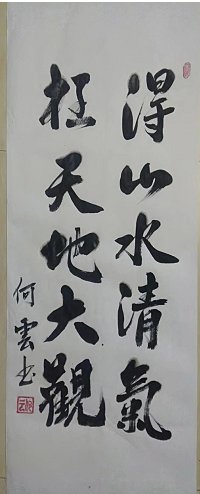 得山水清氣
極天地大觀
何雲书